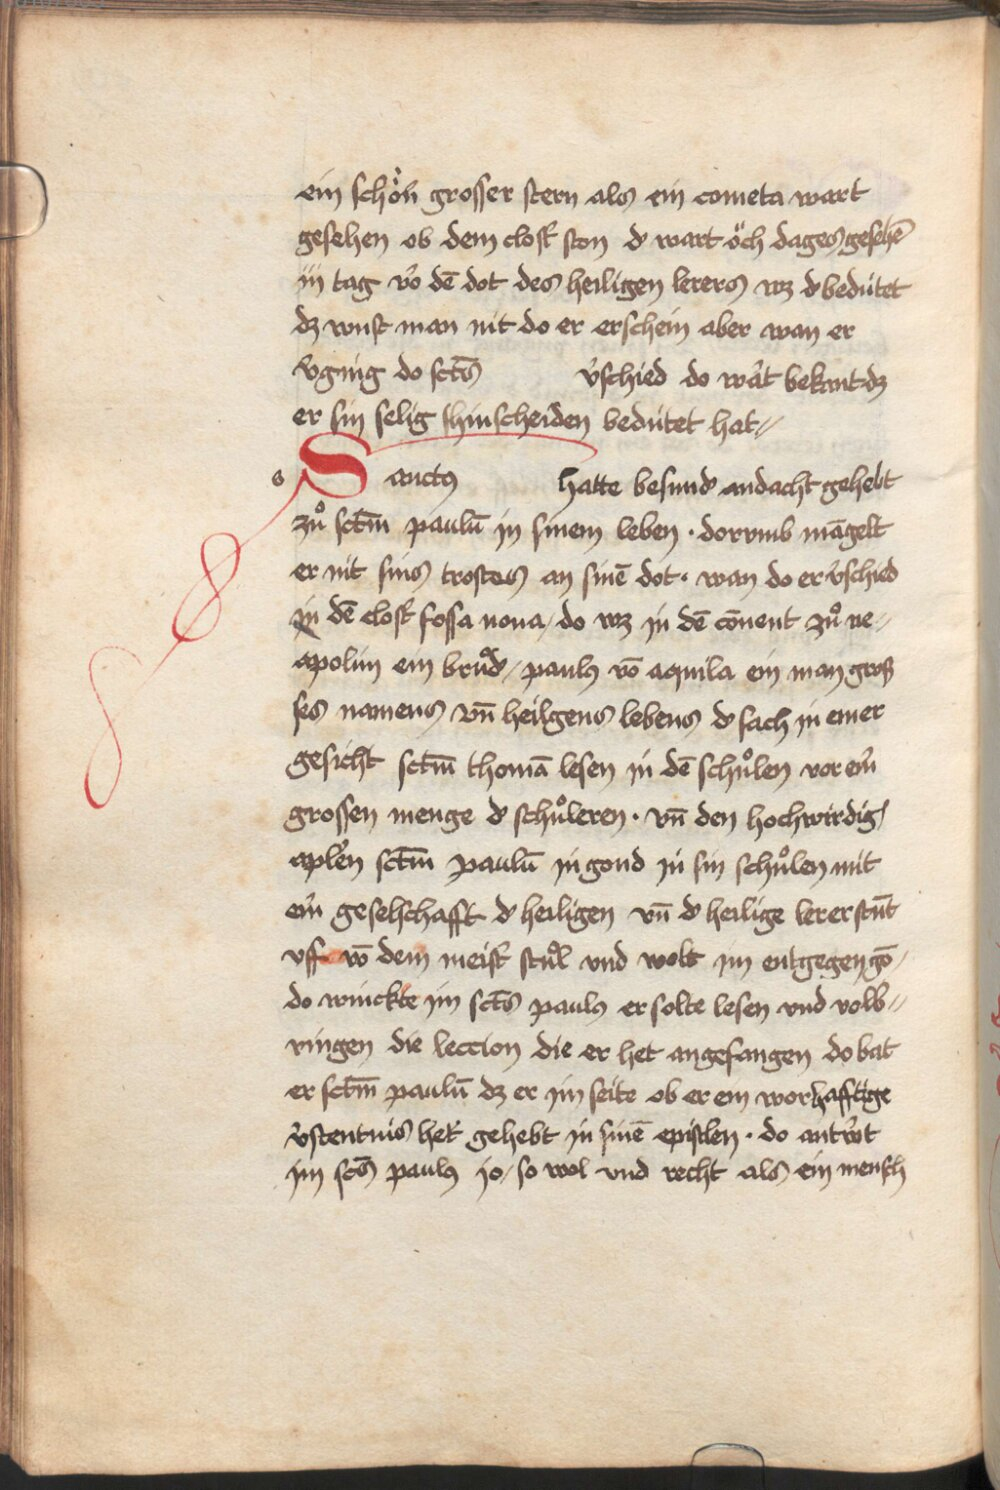 ein schön grosser stern als ein cometa wart
gesehen ob dem clost' ston d' wart öch dages gesehē
iij tag vō dē dot des heiligen lerers wz d' bedütet
dz wust man nit do er erschein aber wan er
v'ging do sctūs v'schied do wart bekant dz
er sin selig hinscheiden bedütet hat //
Sanctus hatte besund' andacht gehebt
zů sctm̄ paulū in sinem leben · dorvmb māgelt
er nit sins trostes an sinē dot · wan do er v'schied
in dē clost' fossa noua / do wz in dē cōuent zů ne //
apolim ein brůd' / paulus vō aquila ein man gros
ses namens vn̄ heilgens lebens d' sach in einer
gesicht sctm̄ thomā lesen in dē schůlen vor ein'
grossen menge d' schůleren · vn̄ den hochwirdig'
aplēn sctm̄ paulū in gond in sin schůlen mit
ein' geselschafft d' heiligen vn̄ d' heilige lerer stūt
vff vō dem meist' stůl vnd wolt im entgegen gō /
do winckte im sctūs paulus er solte lesen vnd volb //
ringen die leccion die er het angefangen do bat
er sctm̄ paulū dz er im seite ob er ein worhafftige
v'stentnis het gehebt in sinē epistlen · do antw't
im sctūs paulus jo / so wol vnd recht als ein mensch